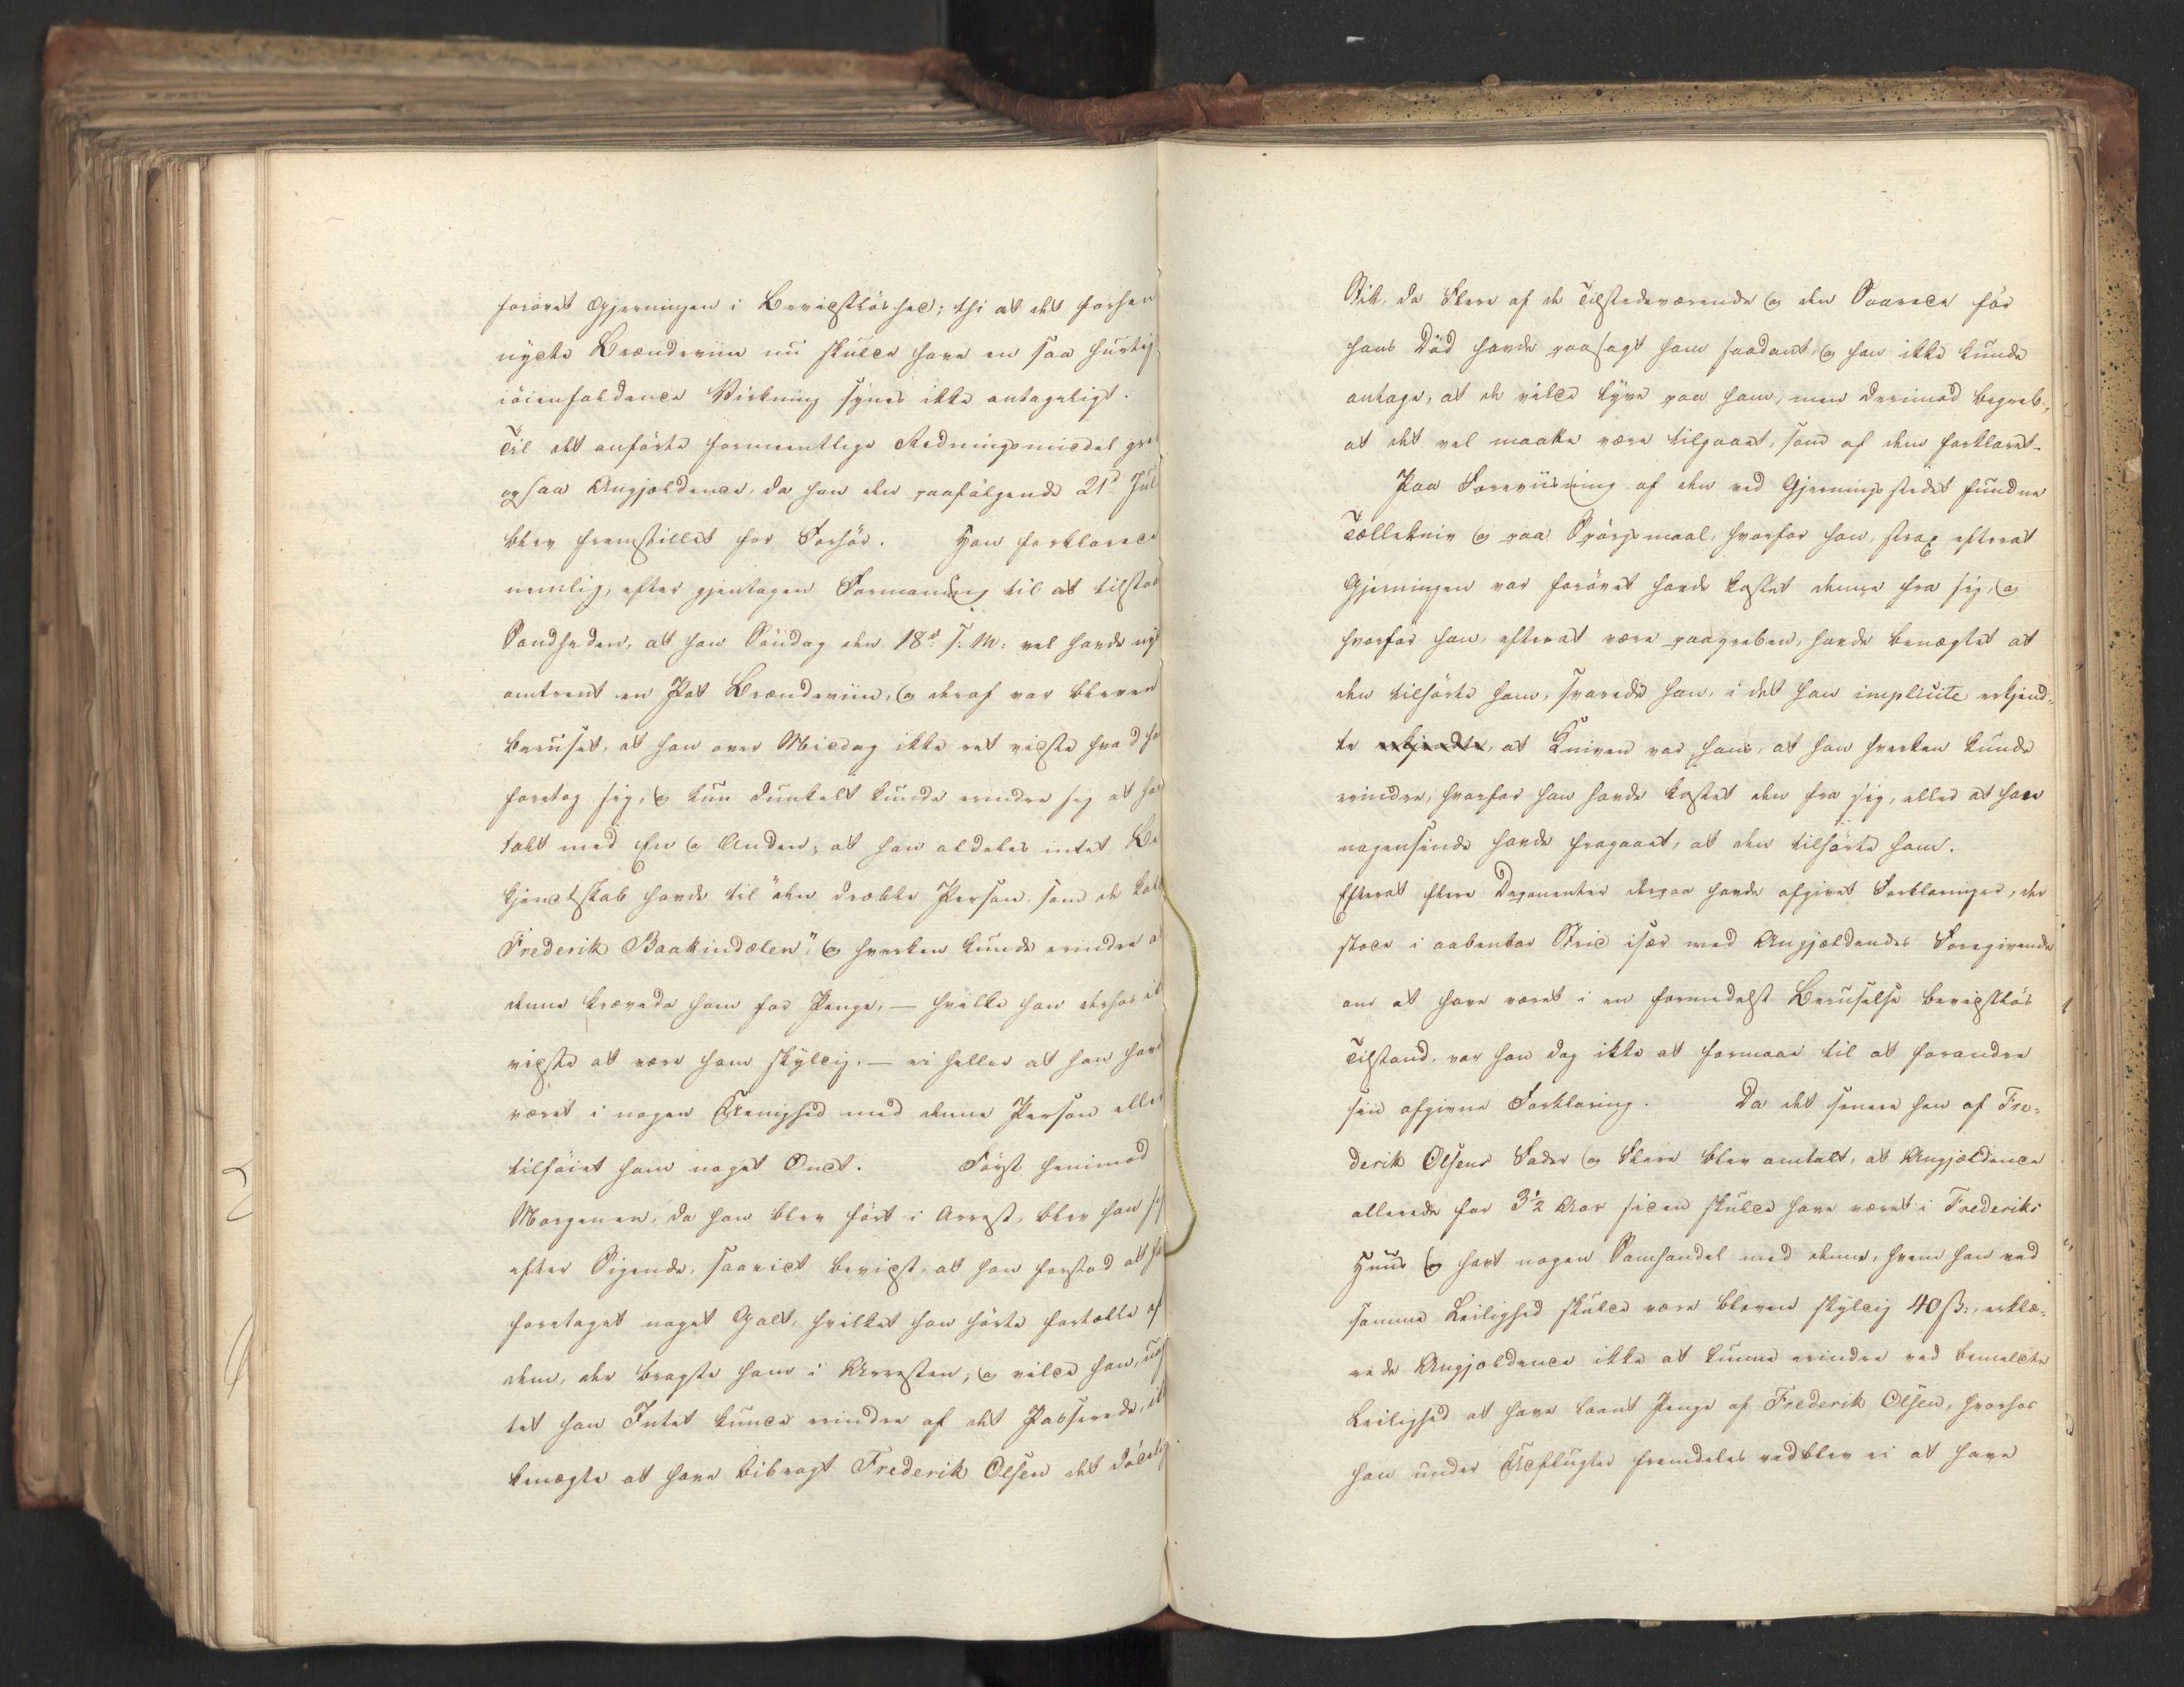 forøvet Gjerningen i Bevidstløshed; thi at det forhen
nydte Brændeviin nu skulde have en saa hurtig
iøienfaldende Virkning synes ikke antageligt.
Til det anførte formeentlige Redningsmiddel gre
ogsaa Angjældende, da han den paafølgende 21d Jul
blev fremstillet for Forhør. Han forklarede
nemlig, efter gjentagen Formaning til at tilstaa
Sandheden, at han Søndag den 18d f: M: vel havde nyd
omtrent en Pot Brændeviin, og deraf var bleven
beruset, at han over Middag ikke ret vidste hvad ha
foretog sig, og kun dunkelt kunde erindre sig at hav
talt med En og Anden; at han aldeles intet Be
kjendtskab havde til "den dræbte Person, som de kald
Frederik Baakindælen", og hverken kunde erindre a
denne krævede ham for Penge, — hvilke han derhos ik
vidste at være ham skyldig, — ei heller at han hav
været i nogen Uenighed med denne Person elle
tilføiet ham noget Ondt. Først henimod
Morgenen, da han blev ført i Arrest, blev han si
efter Sigende, saavidt bevidst, at han forstod at ha
foretaget noget Galt, hvilket han hørte fortælle af
dem, der bragte ham i Arresten; og vilde han, uag
tet han Intet kunde erindre af det Passerede, ik
benægte at have bibragt Frederik Olsen det dødelig
Stik, da Flere af de Tilstedeværende og den Saarede før
hans Død havde paasagt ham saadant, og han ikke kunde
antage, at de vilde lyve paa ham, men derimod begreb,
at det vel maatte være tilgaaet, som af dem forklaret.
Paa Foreviisning af den ved Gjerningsstedet fundne
Tællekniv og paa Spørgsmaal, hvorfor han, strax efterat
Gjerningen var forøvet havde kastet denne fra sig, og
hvorfor han, efterat være paagreben, havde benægtet at
den tilhørte ham, svarede han, i det han implicite erkjend-
te erkjendte, at Kniven var hans, at han hverken kunde
erindre, hvorfor han havde kastet den fra sig, eller at han
nogensinde havde fragaaet, at den tilhørte ham.
Efterat flere Deponenter derpaa havde afgivet Forklaringer, der
stode i aabenbar Strid især med Angjældendes Foregivende
om at have været i en formedelst Beruselse bevidstløs
Tilstand, var han dog ikke at formaae til at forandre
sin afgivne Forklaring. Da det senere hen af Fre-
derik Olsens Fader og Flere blev omtalt, at Angjældende
allerede for 3½ Aar siden skulde have været i Frederiks
Huus og havt nogen Samhandel med denne, hvem han ved
samme Leilighed skulde være bleven skyldig 40 ß:, erklæ-
rede Angjældende ikke at kunne erindre ved bemeldte
Leilighed at have laant Penge af Frederik Olsen, hvorhos
han under Udflugter fremdeles vedblev ei at have